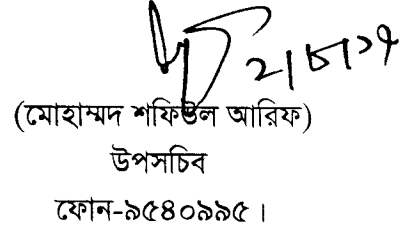 ২|৮|১৭
(মোহাম্মদ শফিউল আরিফ)
উপসচিব
ফোন-৯৫৪০৯৯৫।